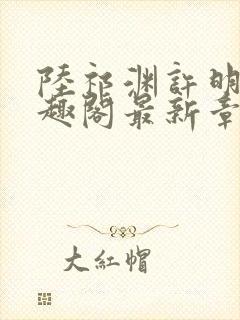 陸祁渊許明
趣閣最新章
大紅帽